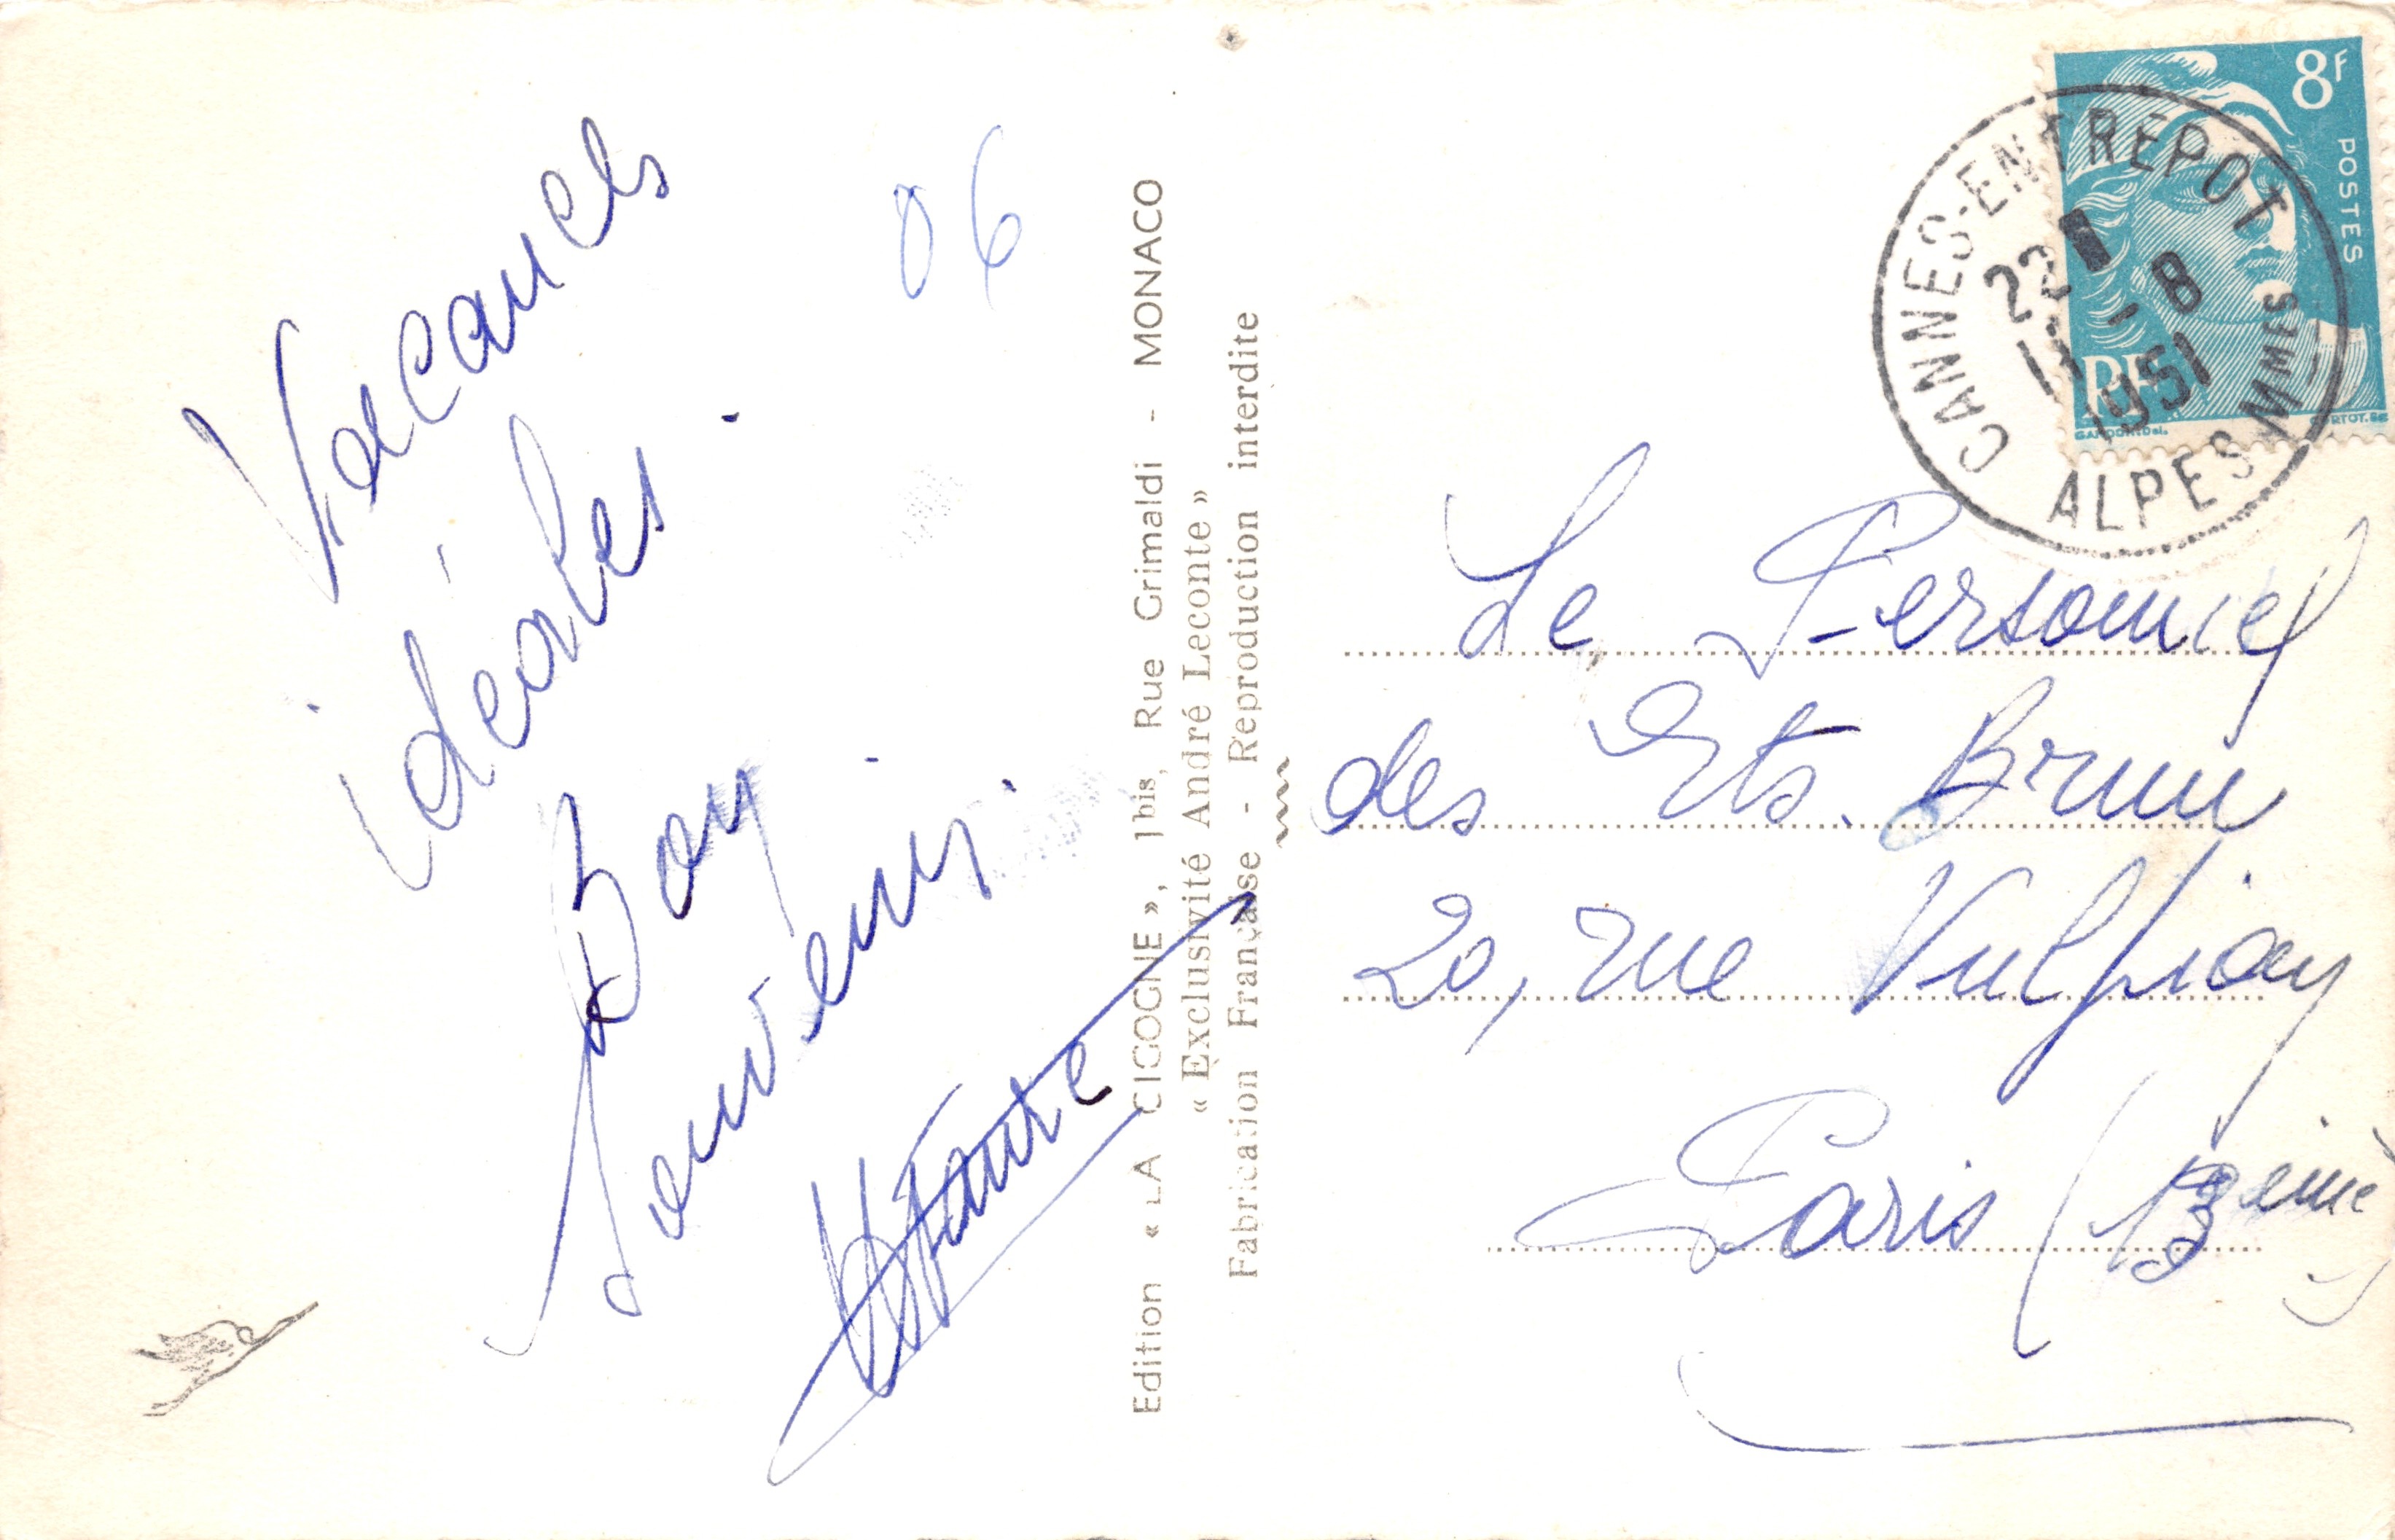 Vacances
idéales.
Bon
souvenir.
06
Edition « LA CIGOGNE », 1bis, Rue Grimaldi - MONACO
« Exclusivité André Leconte »
Fabrication Française - Reproduction interdite
8F
POSTES
RF
CANNES-ENTREPOT
22
11 -8
1951
ALPES MMES
Le Personnel
des Ets. Brun
20, rue Vulpian
Paris (13eme)